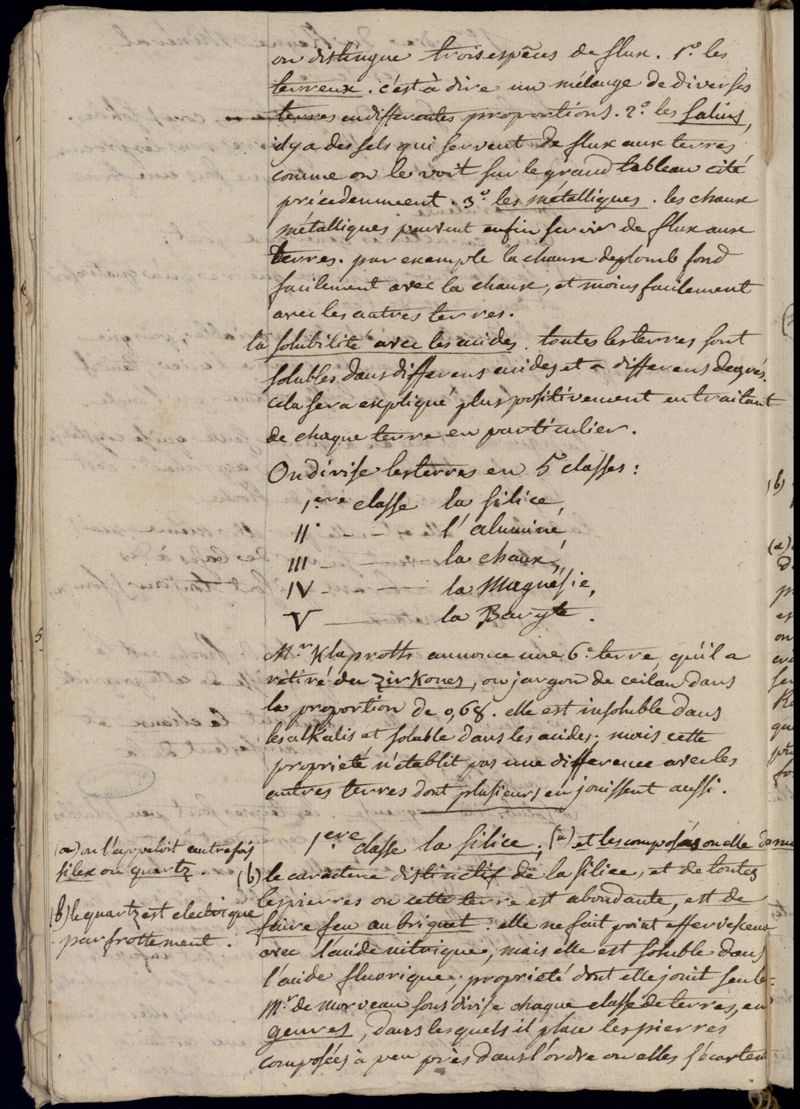 on distingue trois espèces de flux. 1° les
terreux. c'est à dire un mélange de diverses
terres en differentes proportions. 2° les salins,
il y a des sels qui servent de flux aux terres
comme on le voit sur le grand tableau cité
précédemment. 3° les métalliques. les chaux
métalliques peuvent enfin servir de flux aux
terres. par exemple la chaux de plomb fond
facilement avec la chaux, et moins facilement
avec les autres terres.
la solubilité avec les acides. toutes les terres sont
solubles dans differens acides et a differens degrés.
cela sera expliqué plus positivement en traitant
de chaque terre en particulier.
On divise les terres en 5 classes:
1ere classe la silice,
II° - - - l'alumine,
III - - la chaux,
IV - - la Magnésie,
V - la Baryte.
Mr. Klaproth annonce une 6e terre, qu'il a
retiré du zirkones, ou jargon de ceilan dans
la proportion de 0,68. elle est insoluble dans
les alkalis et soluble dans les acides; mais cette
propriété n'établit pas une difference avec les
autres terres dont plusieurs en jouissent aussi.
1ere classe la silice, (a) et les composés ou elle domine
(a) on l'appeloit autrefois
silex ou quartz.
(b) le caractère distinctif de la silice, et de toutes
les pierres ou cette terre est abondante, est de
(b) le quartz est electrique
par frottement.
faire feu au briquet. elle ne fait point effervescence
avec l'acide nitrique, mais elle est soluble dans
l'acide fluorique; propriété dont elle jouit seule.
Mr. de Morveau sous divise chaque classe de terres, en
genres, dans lesquels il place les pierres
composées à peu près dans l'ordre ou elles s'écartent